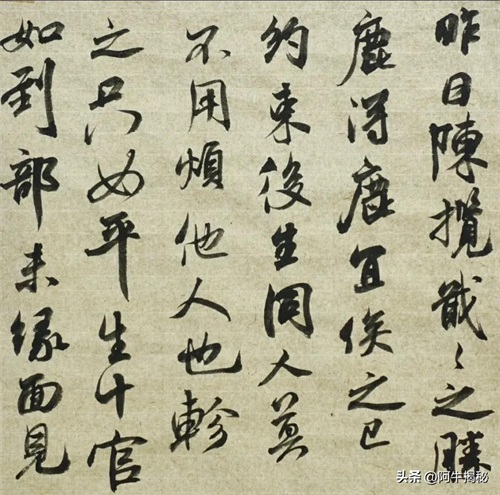 昨日陳攬戢〻之勝
鹿得鹿宜俟之已
約束後生同人莫
不用煩他人也軫
之只如平生十官
如到部未緣面見
头条 @阿牛揭秘